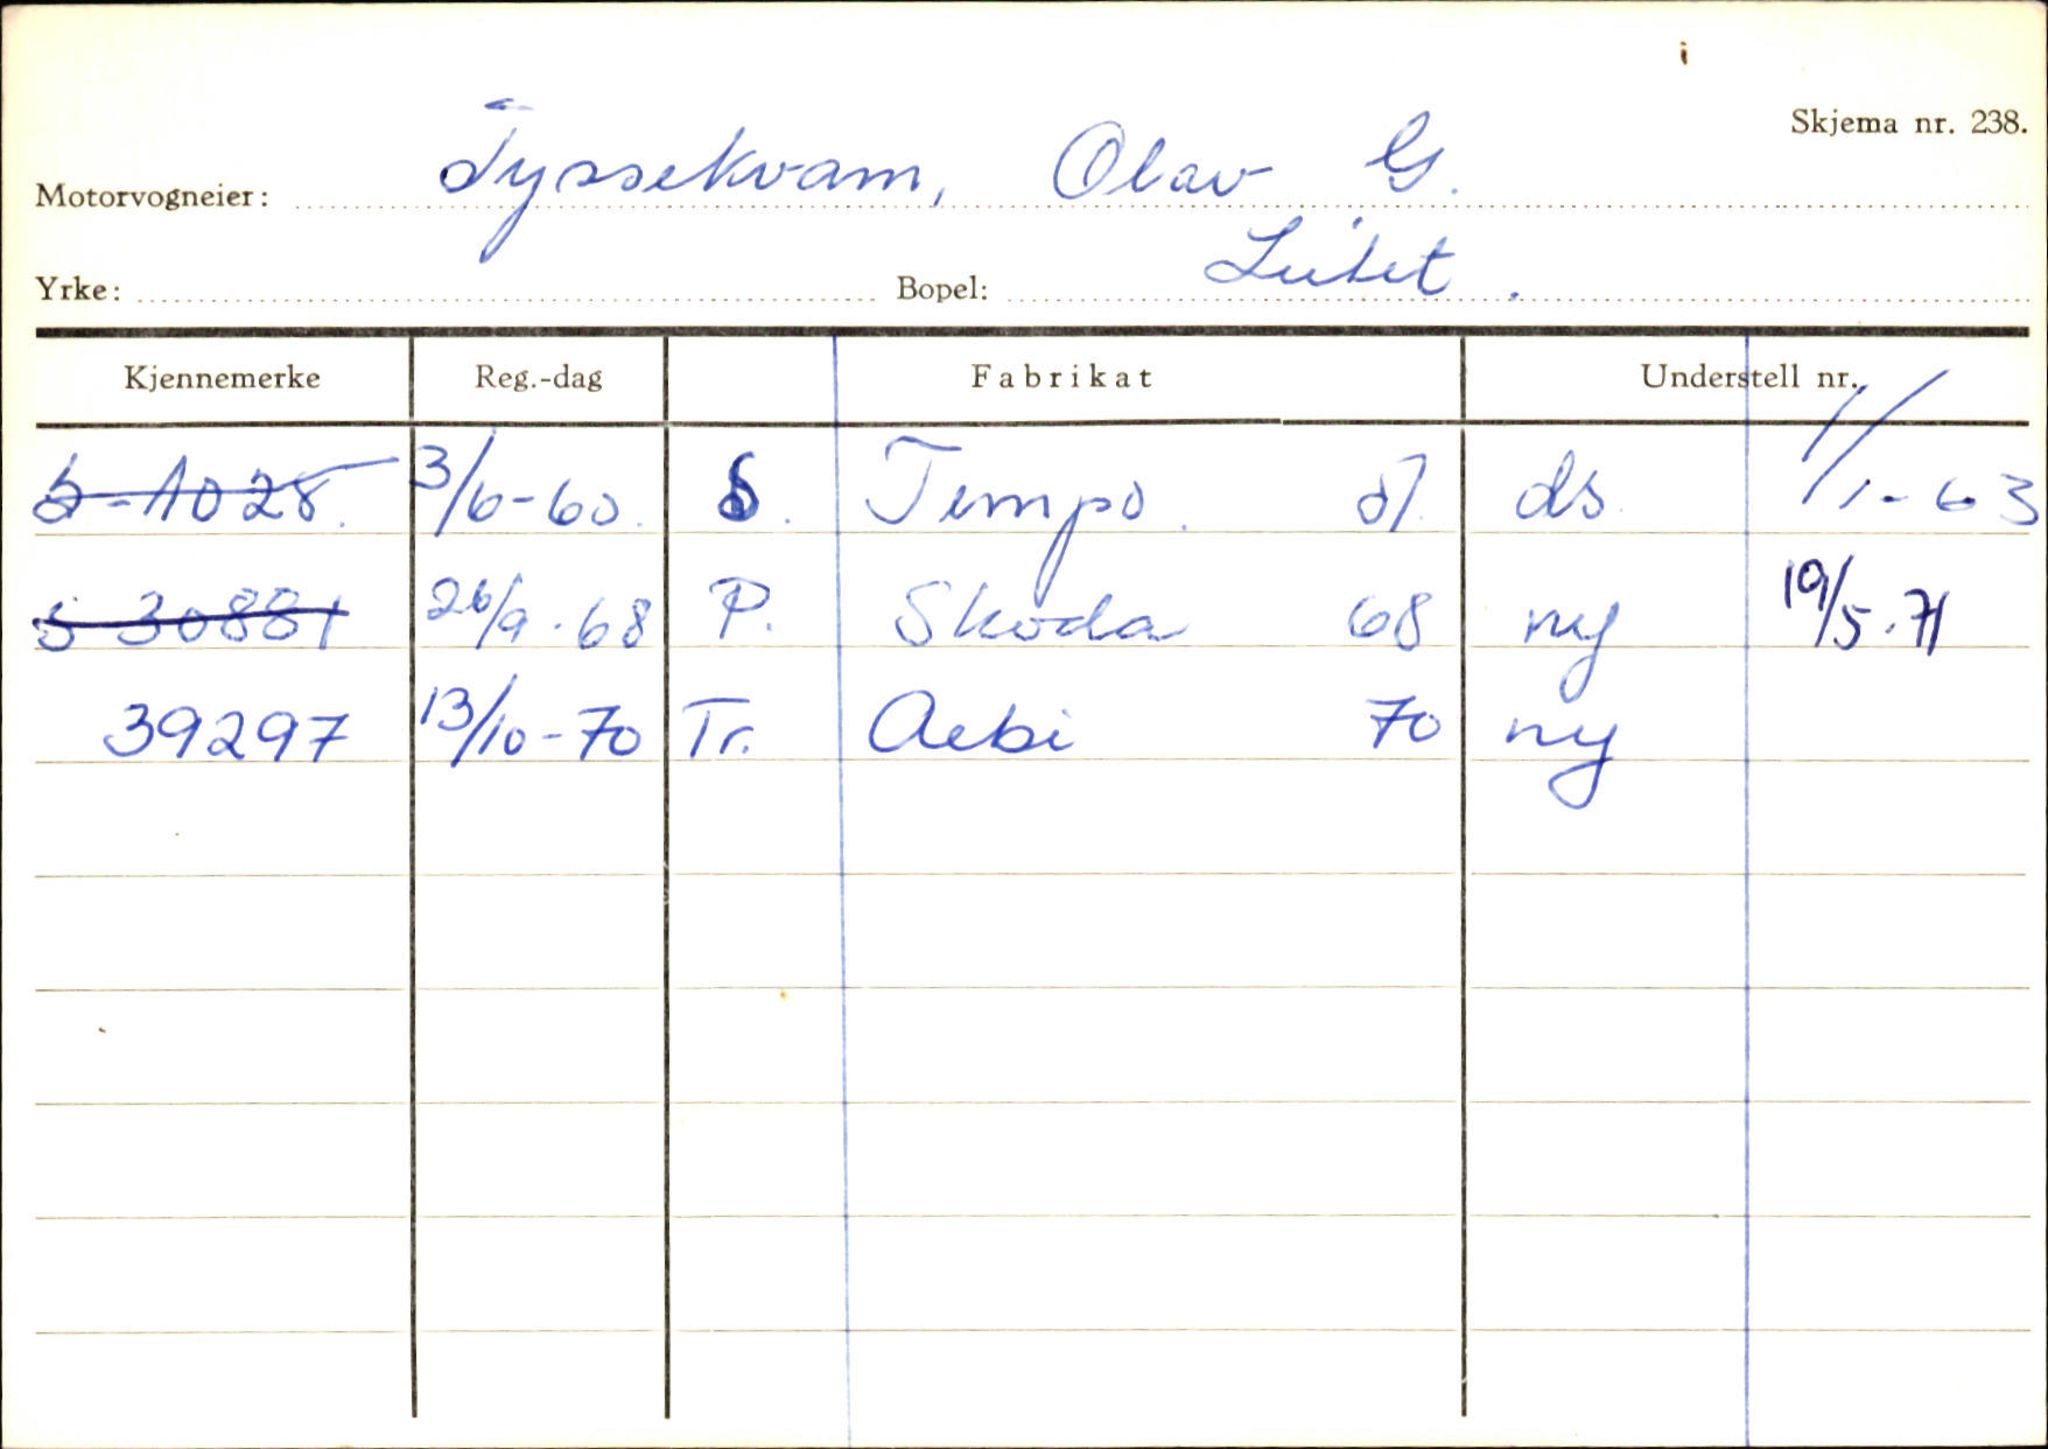 Skjema nr. 238.
Motorvogneier: Tyssekvam, Olav G.
Yrke: Bopel: Lutet.
Kjennemerke Reg.-dag Fabrikat Understell nr.
S-1028. 3/6-60. S. Tempo. ds. 1/1-63
S 30881 26/9-68 P. Skoda 68 ny 19/5.71
39297 13/10-70 Tr. Aebi 70 ny